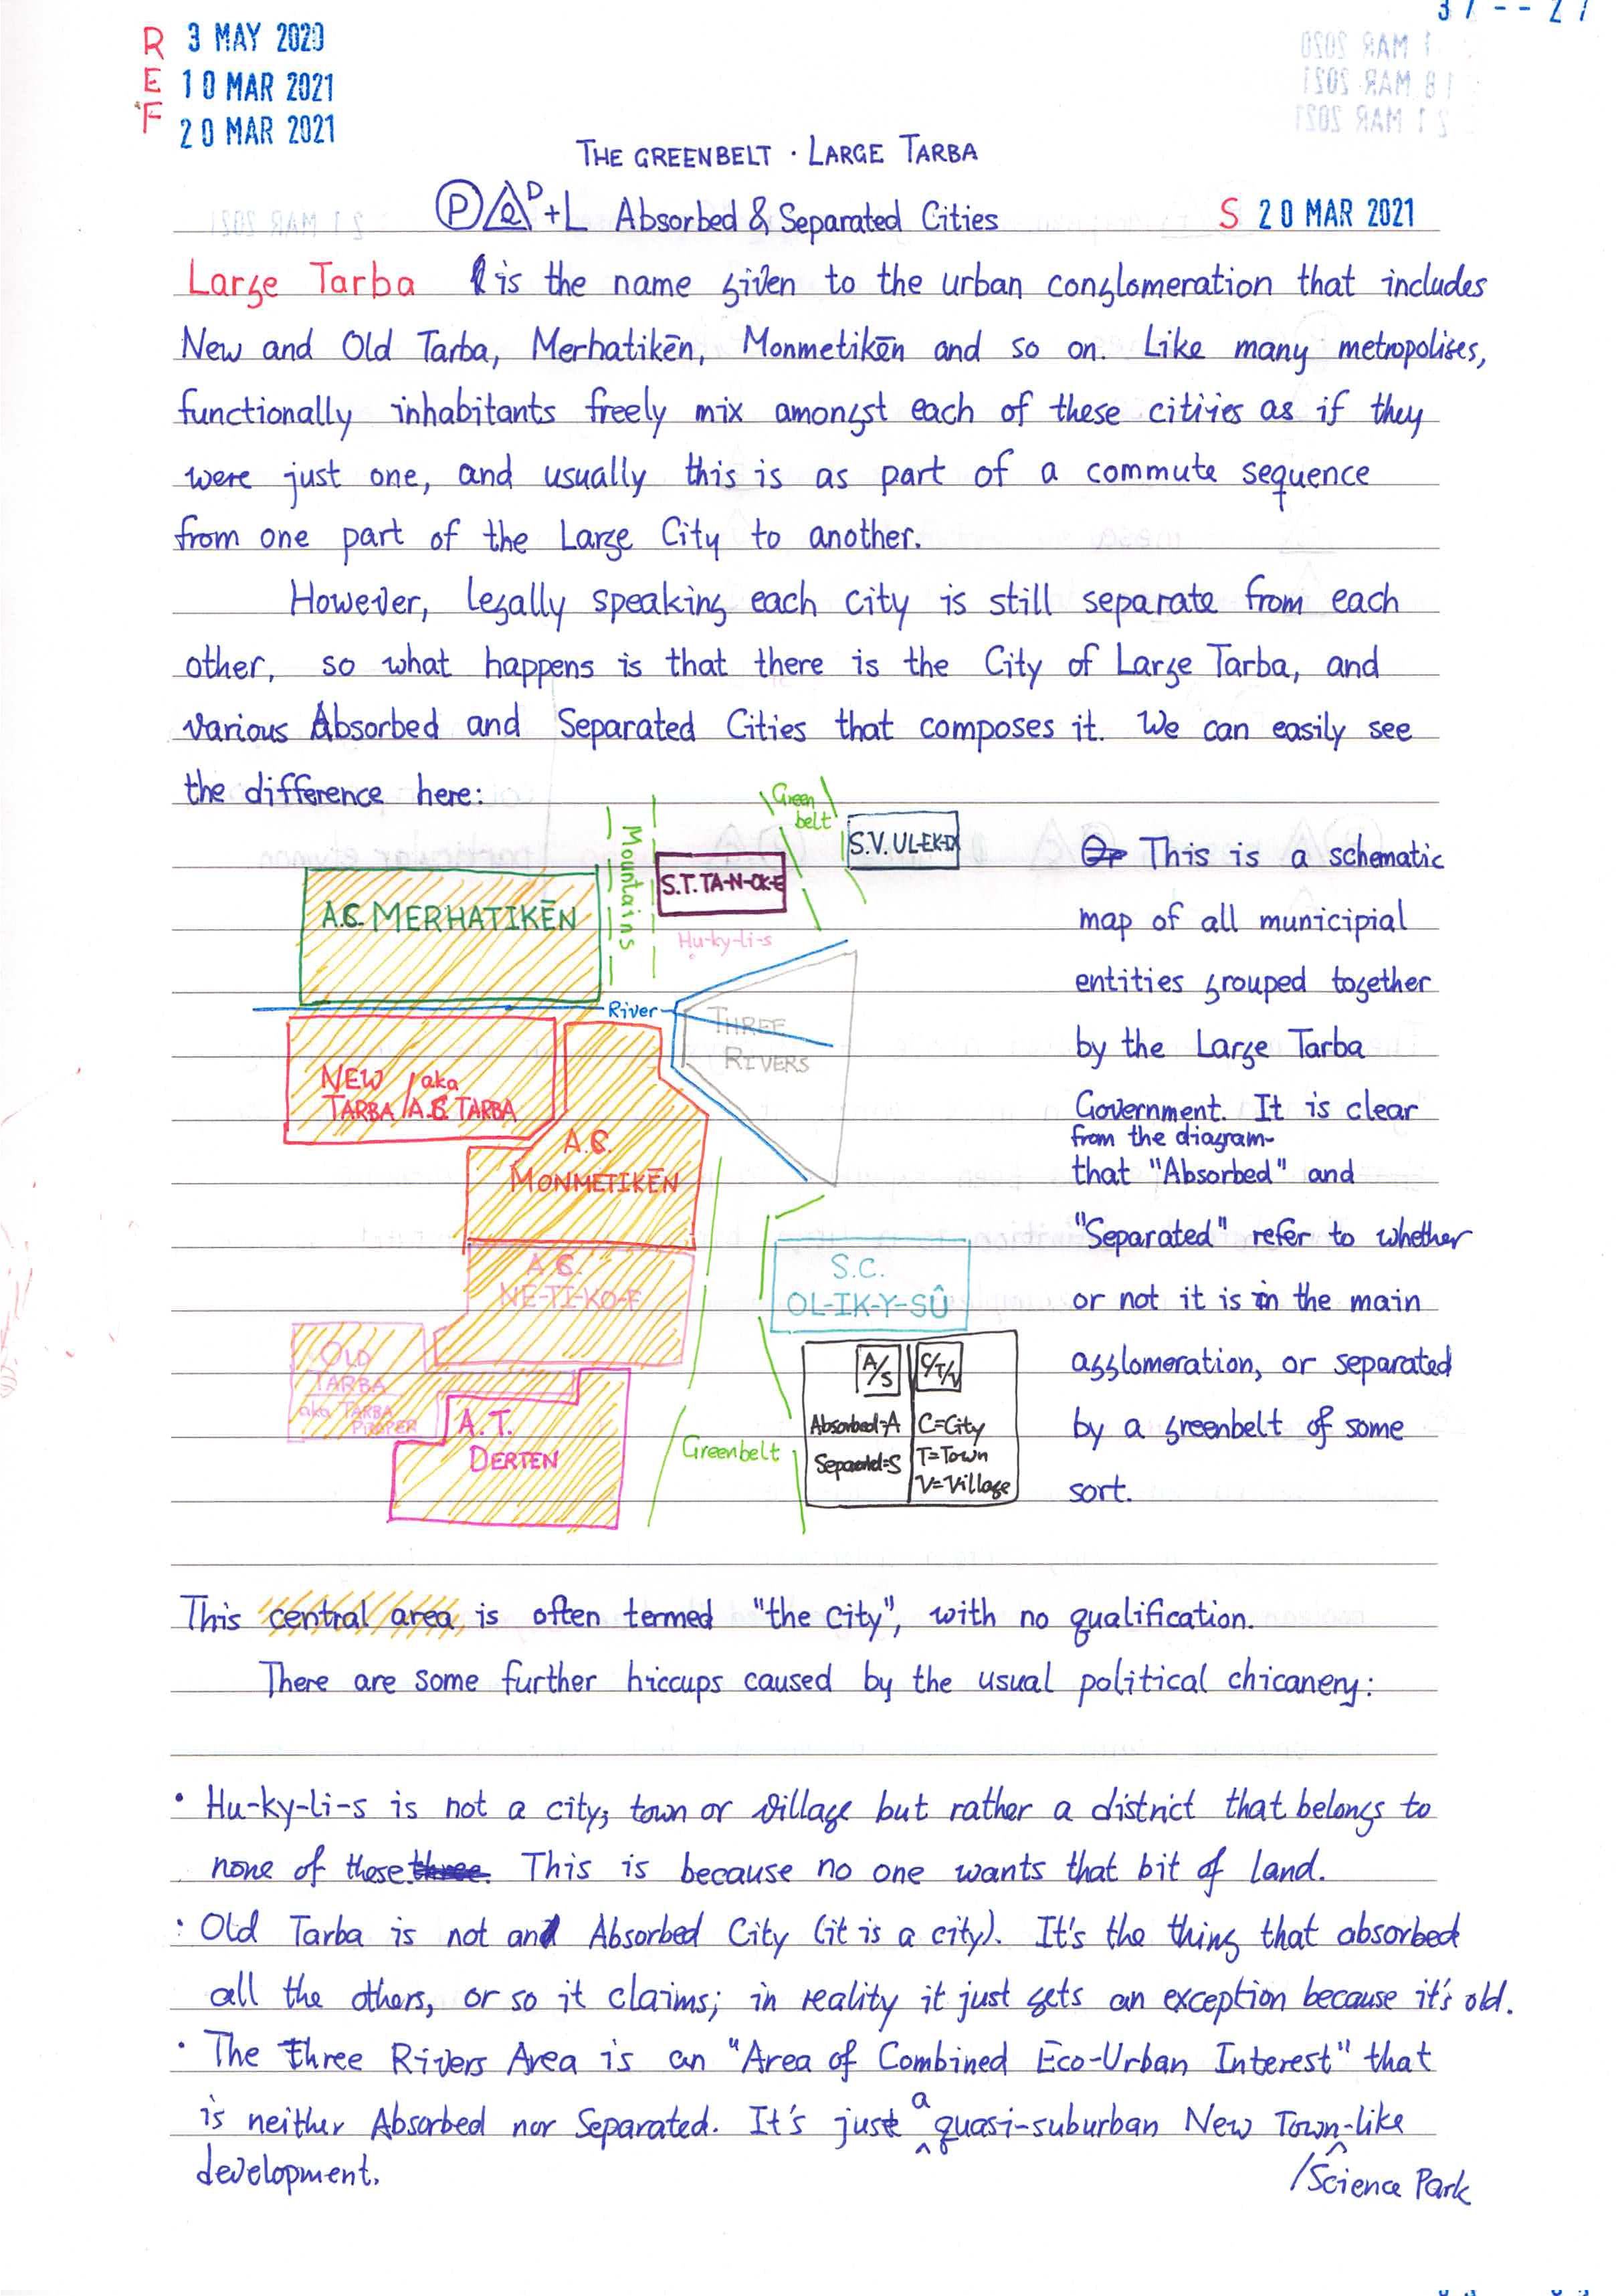 R 3 MAY 2020
E 10 MAR 2021
F 20 MAR 2021
THE GREENBELT · LARGE TARBA
+L Absorbed & Separated Cities
S 20 MAR 2021
Large Tarba is the name given to the urban conglomeration that includes
New and Old Tarba, Merhatikēn, Monmetikēn and so on. Like many metropolises,
functionally inhabitants freely mix amongst each of these cities as if they
were just one, and usually this is as part of a commute sequence
from one part of the Large City to another.
However, legally speaking each city is still separate from each
other, so what happens is that there is the City of Large Tarba, and
various Absorbed and Separated Cities that composes it. We can easily see
the difference here:
Mountains
Green
belt
S.V. UL-EK-D
S.T. TA-N-OK-E
A.C. MERHATIKĒN
Hu-ky-li-s
River
THREE
RIVERS
NEW / aka
TARBA / A.C. TARBA
A.C.
MONMETIKĒN
A.C.
NE-TI-KO-F
S.C.
OL-IK-Y-SÛ
OLD
TARBA
aka TARBA
PROPER
A.T.
DERTEN
Greenbelt
A/S C/T/V
Absorbed=A C=City
Separated=S T=Town
V=Village
This is a schematic
map of all municipial
entities grouped together
by the Large Tarba
Government. It is clear
from the diagram
that "Absorbed" and
"Separated" refer to whether
or not it is in the main
agglomeration, or separated
by a greenbelt of some
sort.
This central area is often termed "the city", with no qualification.
There are some further hiccups caused by the usual political chicanery:
· Hu-ky-li-s is not a city, town or village but rather a district that belongs to
none of these. This is because no one wants that bit of land.
· Old Tarba is not an Absorbed City (it is a city). It's the thing that absorbed
all the others, or so it claims; in reality it just gets an exception because it's old.
· The Three Rivers Area is an "Area of Combined Eco-Urban Interest" that
is neither Absorbed nor Separated. It's just a quasi-suburban New Town/Science Park-like
development.